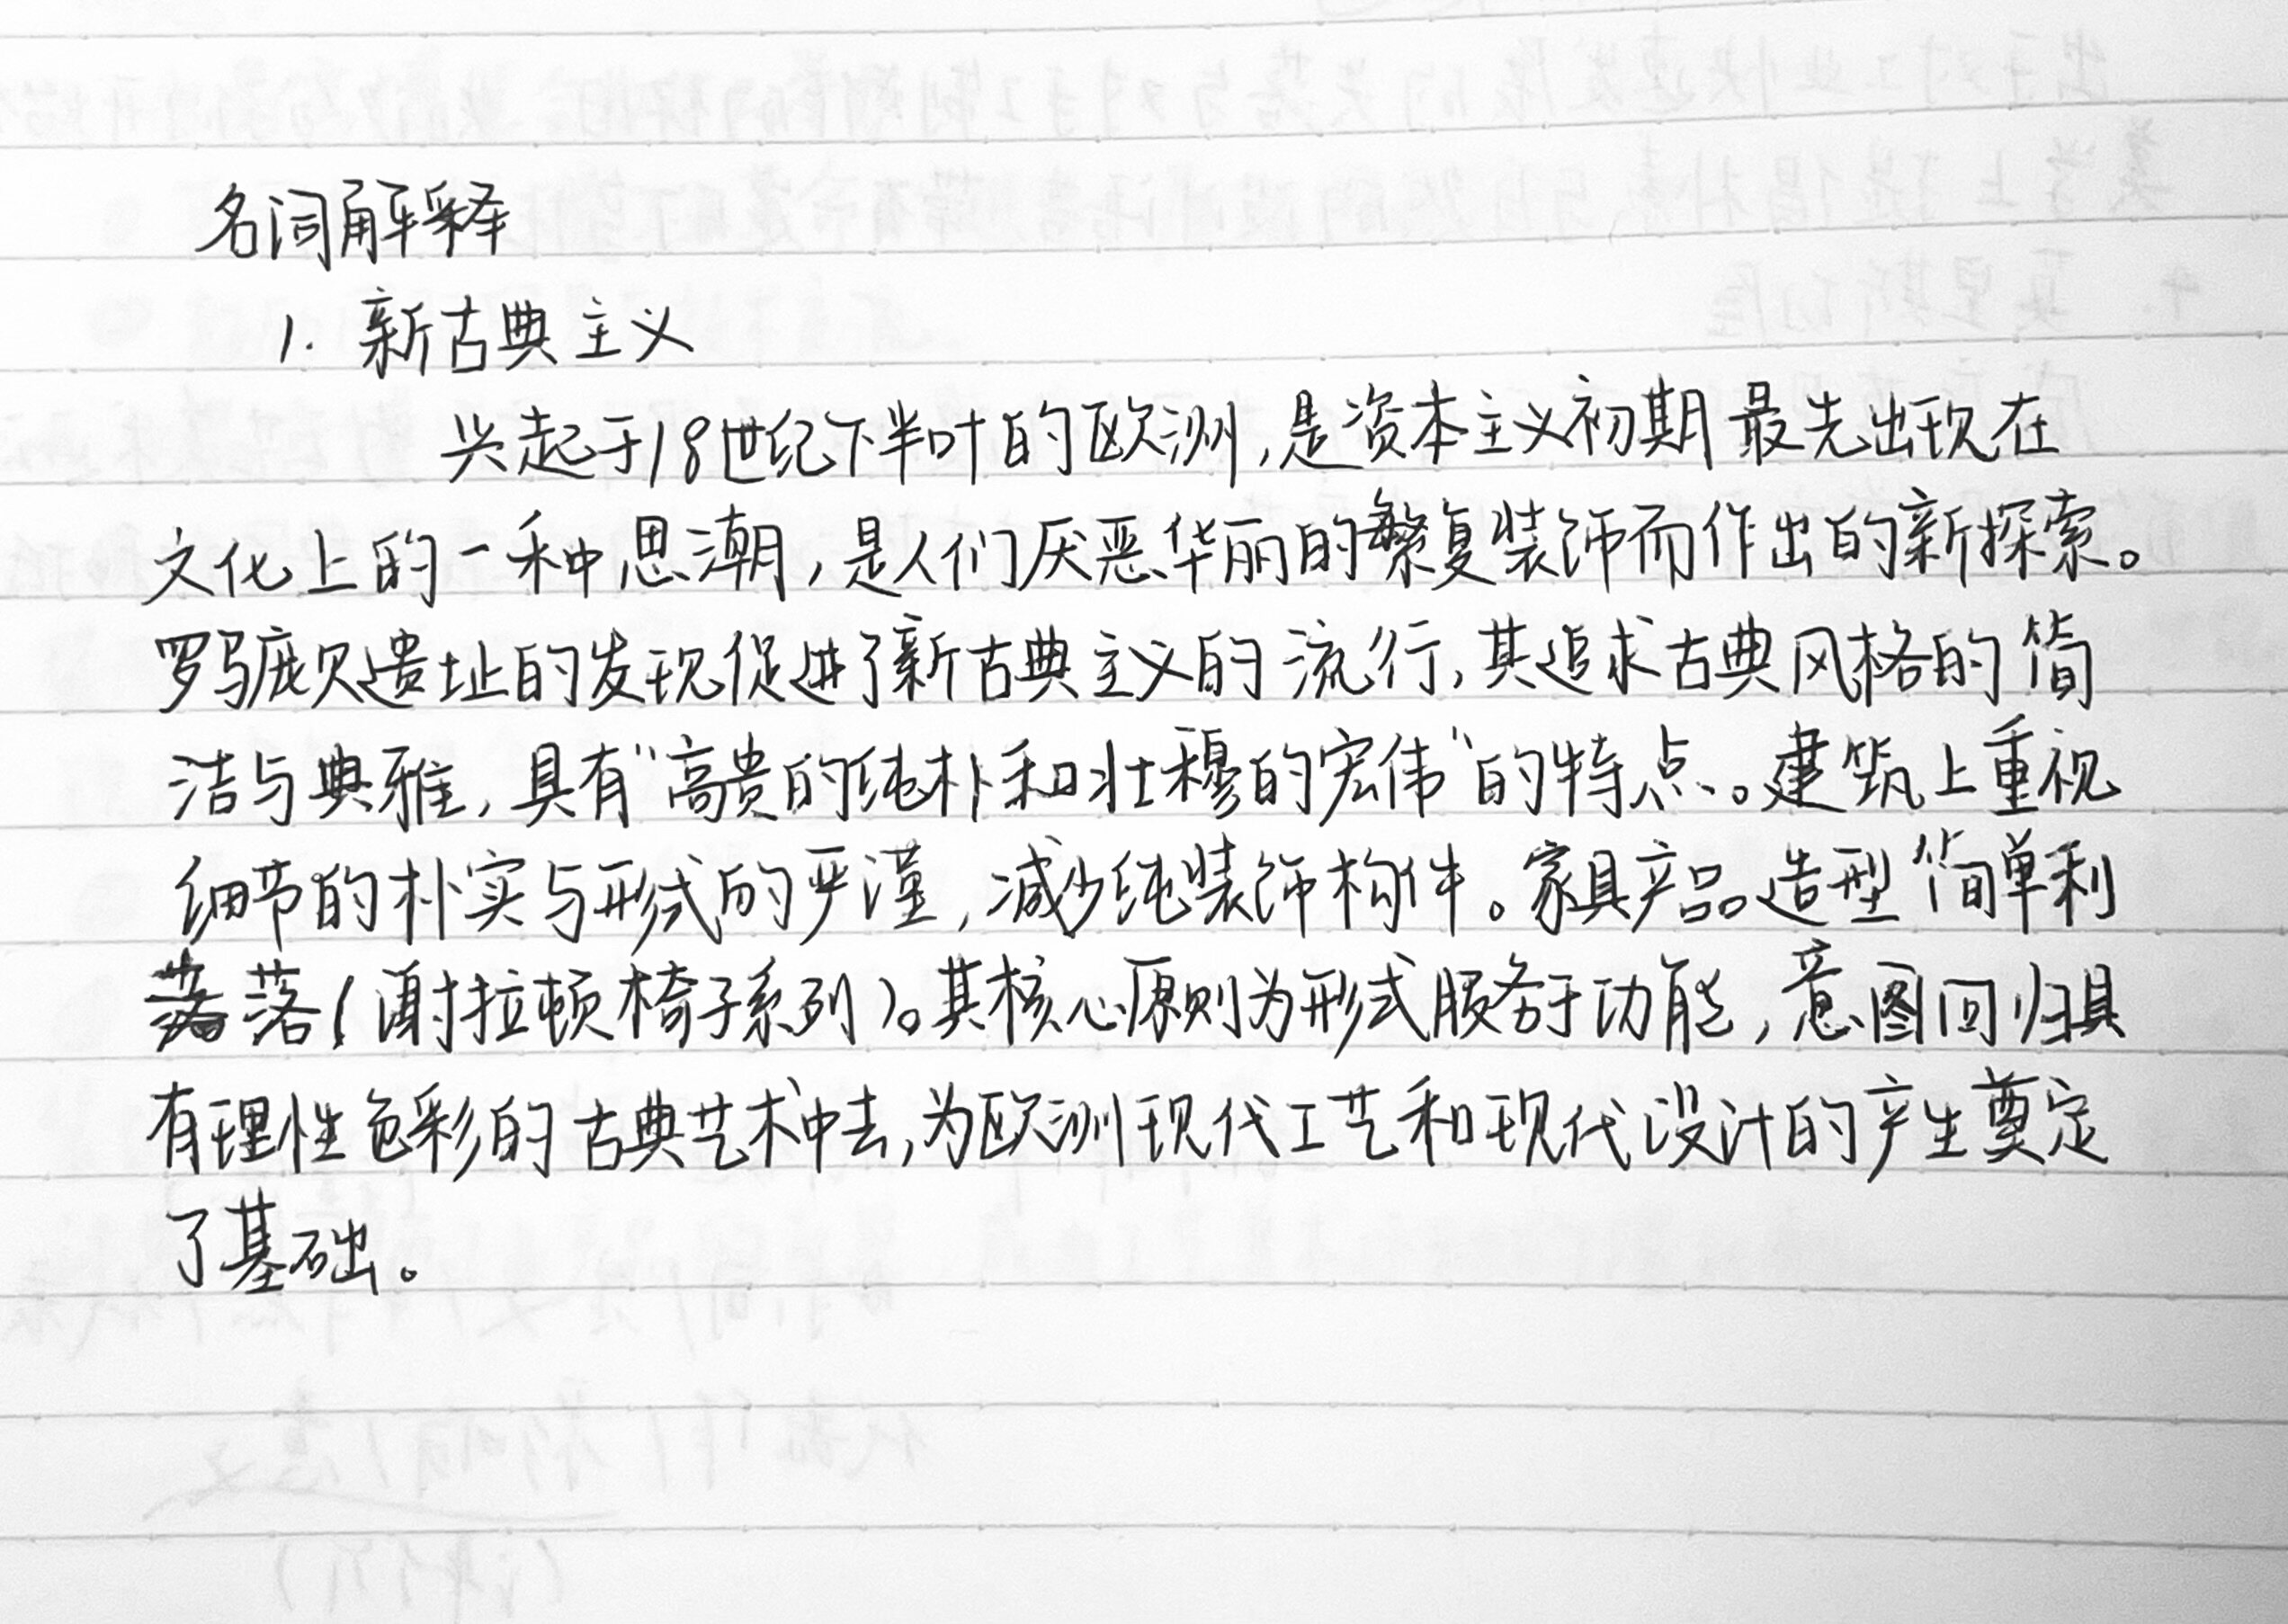 名词解释
1. 新古典主义
兴起于18世纪下半叶的欧洲,是资本主义初期最先出现在
文化上的一种思潮,是人们厌恶华丽的繁复装饰而作出的新探索。
罗马庞贝遗址的发现促进了新古典主义的流行,其追求古典风格的简
洁与典雅,具有“高贵的纯朴和壮穆的宏伟”的特点。建筑上重视
细节的朴实与形式的严谨,减少纯装饰构件。家具产品造型简单利
落(谢拉顿椅子系列)。其核心原则为形式服务于功能,意图回归具
有理性色彩的古典艺术中去,为欧洲现代工艺和现代设计的产生奠定
了基础。